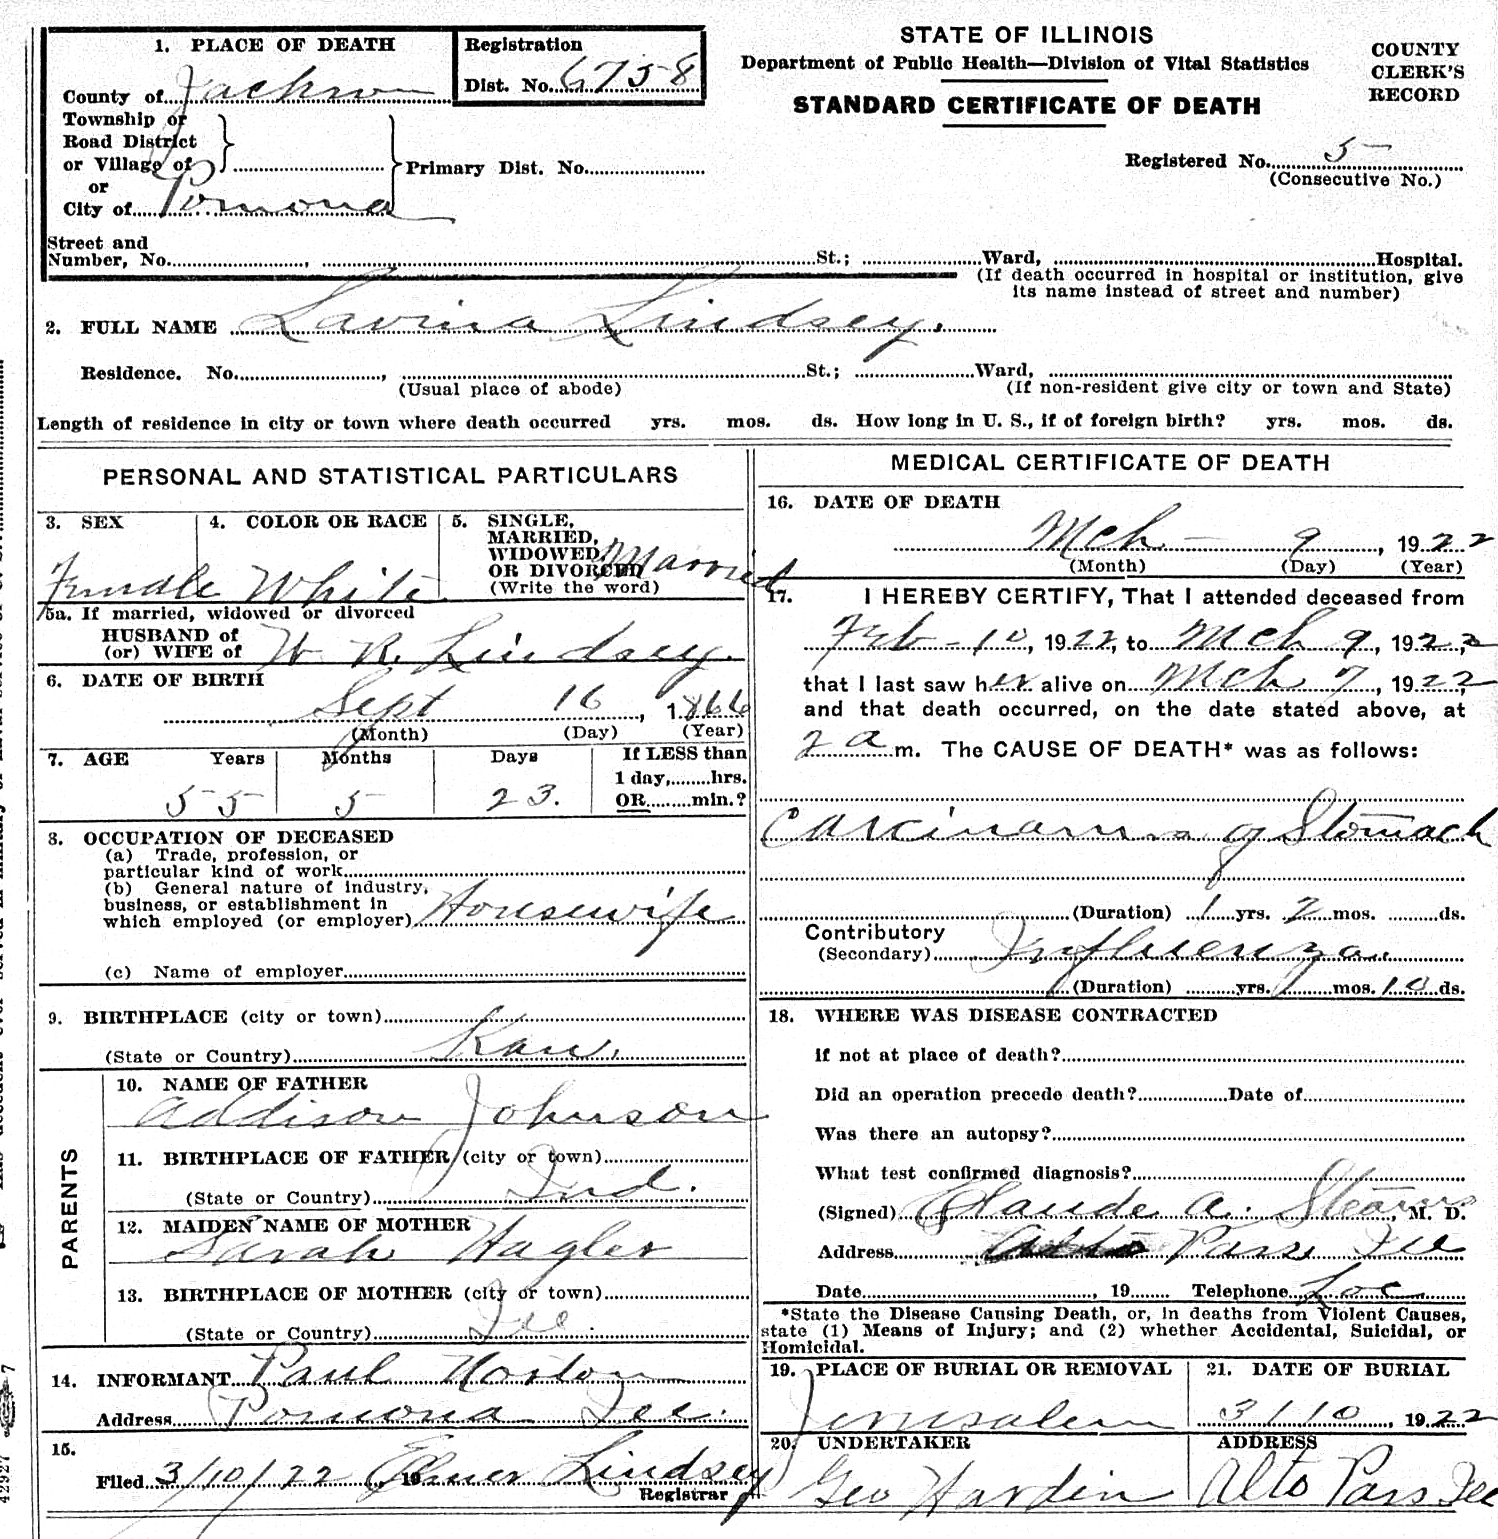 STATE OF ILLINOIS
Department of Public Health—Division of Vital Statistics
STANDARD CERTIFICATE OF DEATH
COUNTY
CLERK'S
RECORD
1. PLACE OF DEATH
County of Jackson
Registration
Dist. No. 6758
Township or
Road District
or Village of
or
City of Pomona
Primary Dist. No.
Registered No. 5
(Consecutive No.)
Street and
Number, No. , St.; Ward, Hospital.
(If death occurred in hospital or institution, give
its name instead of street and number)
2. FULL NAME Lavina Lindsey.
Residence. No. , St.; Ward,
(Usual place of abode) (If non-resident give city or town and State)
Length of residence in city or town where death occurred yrs. mos. ds. How long in U. S., if of foreign birth? yrs. mos. ds.
PERSONAL AND STATISTICAL PARTICULARS
3. SEX
Female
4. COLOR OR RACE
White
5. SINGLE,
MARRIED,
WIDOWED,
OR DIVORCED
(Write the word)
Married
5a. If married, widowed or divorced
HUSBAND of
(or) WIFE of W R. Lindsey.
6. DATE OF BIRTH
Sept 16, 1866
(Month) (Day) (Year)
7. AGE Years Months Days
55 5 23.
If LESS than
1 day, hrs.
OR min.?
8. OCCUPATION OF DECEASED
(a) Trade, profession, or
particular kind of work
(b) General nature of industry,
business, or establishment in
which employed (or employer) Housewife
(c) Name of employer
9. BIRTHPLACE (city or town)
(State or Country) Kan.
PARENTS
10. NAME OF FATHER
Addison Johnson
11. BIRTHPLACE OF FATHER (city or town)
(State or Country) Ind.
12. MAIDEN NAME OF MOTHER
Sarah Hagler
13. BIRTHPLACE OF MOTHER (city or town)
(State or Country) Ill.
14. INFORMANT Paul Norton
Address Pomona Ill.
15.
Filed 3/10/22, 19 Elmer Lindsey
Registrar
MEDICAL CERTIFICATE OF DEATH
16. DATE OF DEATH
Mch - 9, 1922
(Month) (Day) (Year)
17. I HEREBY CERTIFY, That I attended deceased from
Feb - 10, 1922, to Mch 9, 1922,
that I last saw her alive on Mch 7, 1922,
and that death occurred, on the date stated above, at
2 a m. The CAUSE OF DEATH* was as follows:
Carcinoma of Stomach
(Duration) 1 yrs. 2 mos. ds.
Contributory
(Secondary) Influenza.
(Duration) yrs. mos. 10 ds.
18. WHERE WAS DISEASE CONTRACTED
if not at place of death?
Did an operation precede death? Date of
Was there an autopsy?
What test confirmed diagnosis?
(Signed) Claude A. Stearns, M. D.
Address Alto Pass Ill
Date , 19 Telephone Loc
*State the Disease Causing Death, or, in deaths from Violent Causes,
state (1) Means of Injury; and (2) whether Accidental, Suicidal, or
Homicidal.
19. PLACE OF BURIAL OR REMOVAL
Jerusalem
21. DATE OF BURIAL
3/10, 1922
20. UNDERTAKER
Geo Hardin
ADDRESS
Alto Pass Ill
42927 7